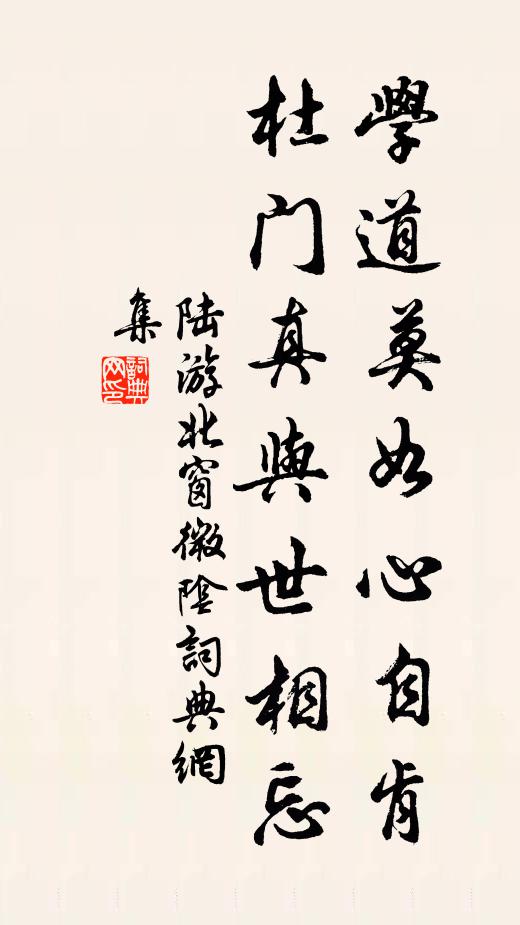 學道莫如心自肯
杜門真與世相忘
陆游北窗微陰詞典網
集
詞典网印